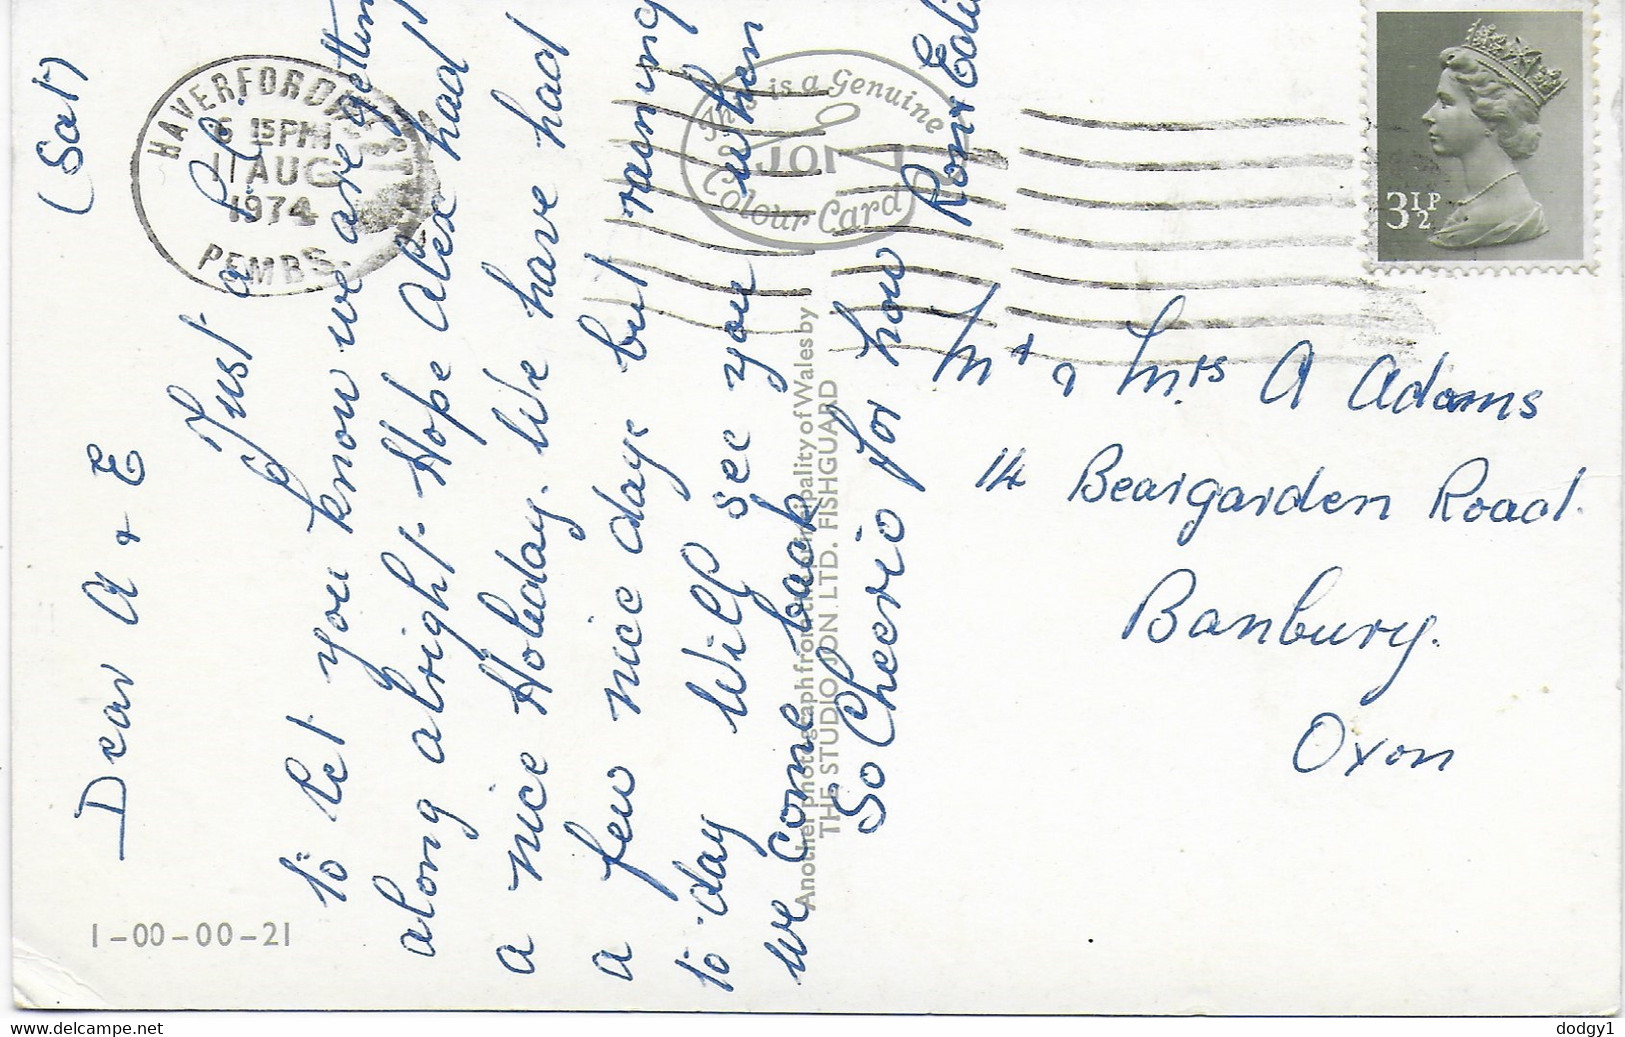 (Sat)
Dear A & E
Just a P.C.
to let you know we are getting
along alright. Hope Alex had
a nice Holiday. We have had
a few nice days but raining
to-day Will see you when
we come back
So Cheerio for now Ron & Edie
HAVERFORDWEST
6 15PM
11 AUG
1974
PEMBS.
This is a Genuine
JON
Colour Card
Another photograph from the Principality of Wales by
THE STUDIO JON LTD. FISHGUARD
3½P
Mr & Mrs A Adams
14 Beargarden Road.
Banbury.
Oxon
1-00-00-21
www.delcampe.net
dodgy1